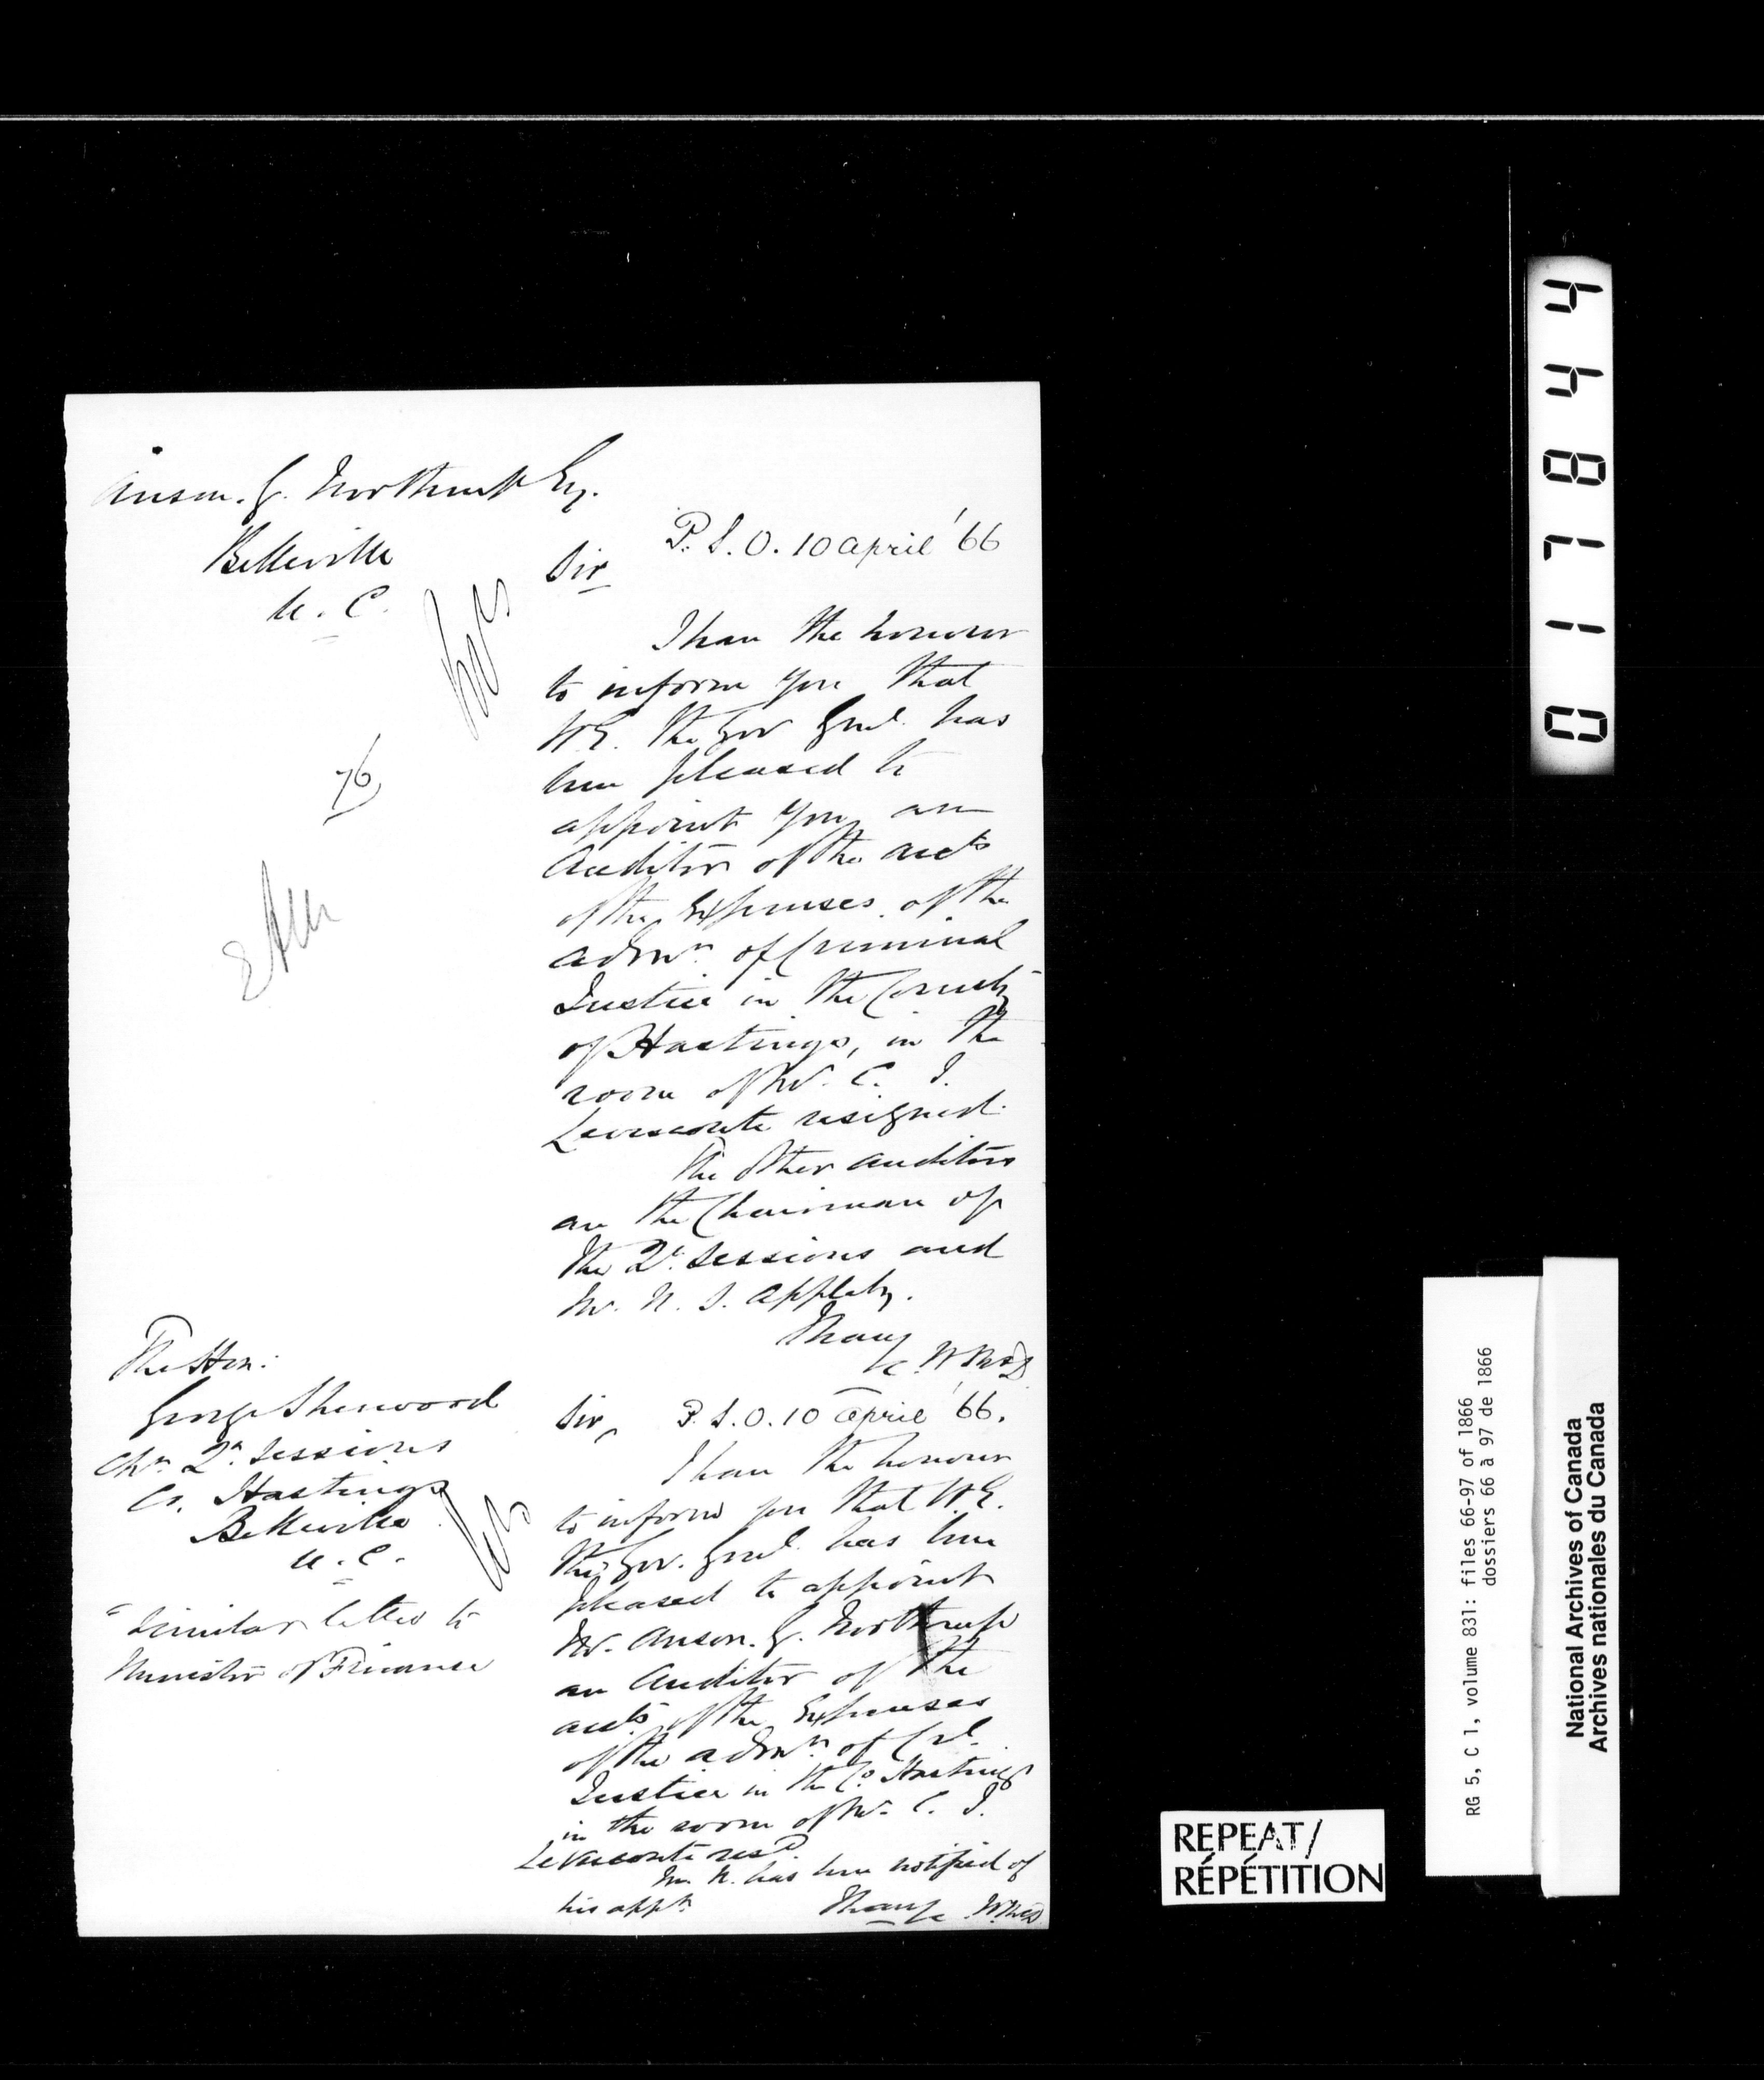 Anson. G. Northrup Esq.
Belleville
U. C.
76
P. S. O. 10 April '66
Sir
I have the honour
to inform you that
H.E. the Gov Genl. has
been pleased to
appoint you an
Auditor of the accts
of the Expenses of the
Admn. of Criminal
Justice in the County
of Hastings, in the
room of Mr. C. J.
Levesconte resigned.
The other auditors
are the Chairman of
the Qr. Sessions and
Mr. N. S. Appleby.
I have
&c
The Hon:
George Sherwood
Chn. Qr. Sessions
Co. Hastings
Belleville
U. C.
Similar letter to
Minister of Finance
Sir, P. S. O. 10 April '66.
I have the honour
to inform you that H.E.
the Gov. Genl. has been
pleased to appoint
Mr. Anson. G. Northrup
an Auditor of the
accts. of the Expenses
of the Admn. of Crl.
Justice in the Co. Hastings
in the room of Mr. C. J.
Levesconte resd.
Mr. N. has been notified of
his appt.
I have &c
017844
RG 5, C 1, volume 831: files 66-97 of 1866
dossiers 66 à 97 de 1866
National Archives of Canada
Archives nationales du Canada
REPEAT/
RÉPÉTITION